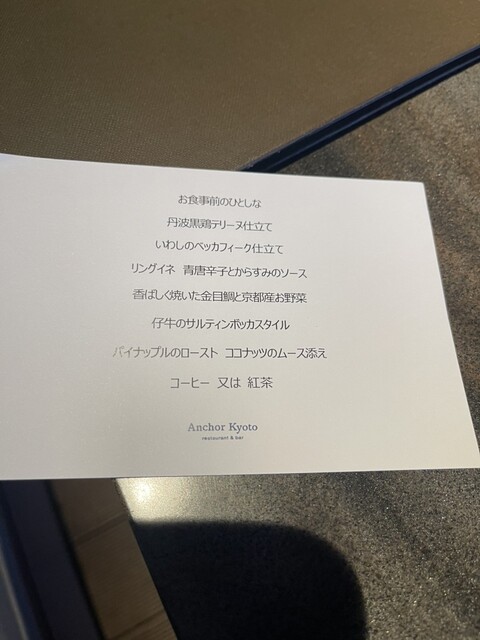 お食事前のひとしな
丹波黒鶏テリーヌ仕立て
いわしのベッカフィーク仕立て
リングイネ 青唐辛子とからすみのソース
香ばしく焼いた金目鯛と京都産お野菜
仔牛のサルティンボッカスタイル
パイナップルのロースト ココナッツのムース添え
コーヒー 又は 紅茶
Anchor Kyoto
restaurant & bar